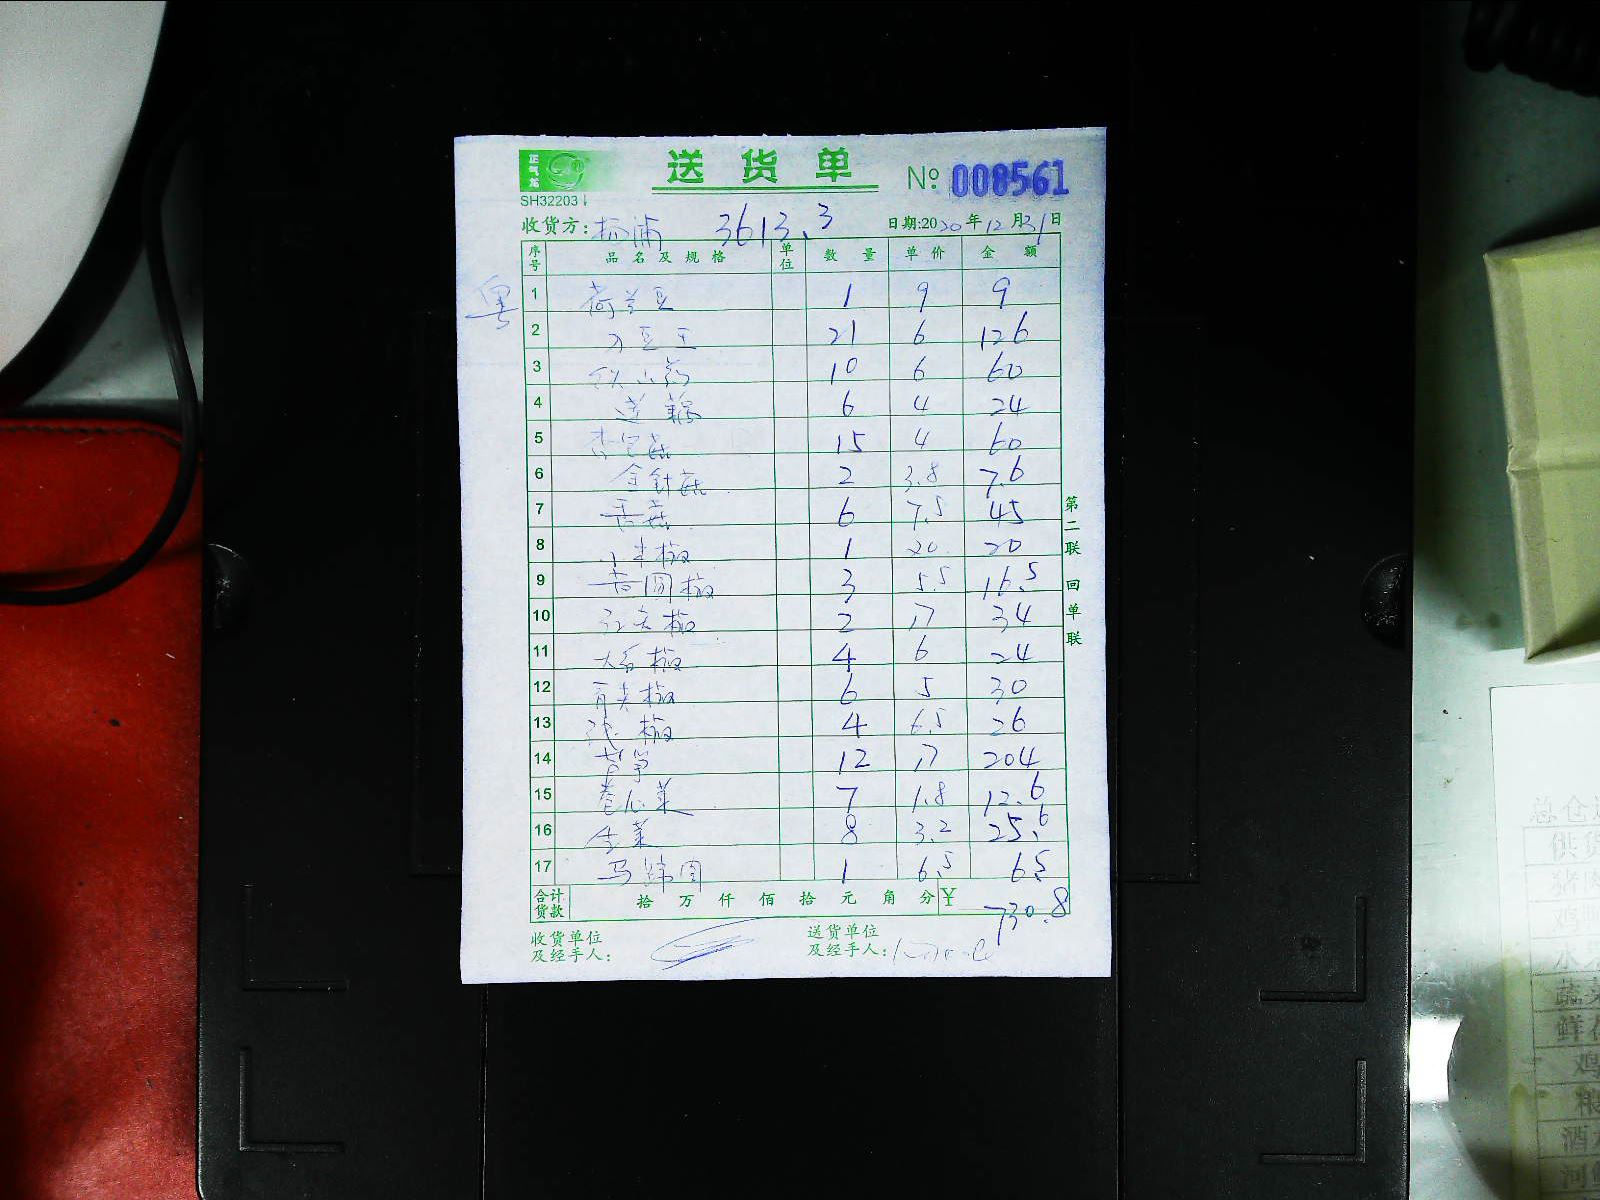 正气龙
送货单
№ 008561
SH32203
收货方：杨浦 3613.3 日期:2020年12月31日
序号 品名及规格 单位 数量 单价 金额
粤
1 荷兰豆 1 9 9
2 刀豆王 21 6 126
3 铁山药 10 6 60
4 莲藕 6 4 24
5 杏包菇 15 4 60
6 金针菇 2 3.8 7.6
7 香菇 6 7.5 45
8 小米椒 1 20 20
9 青圆椒 3 5.5 16.5
10 红尖椒 2 17 34
11 大红椒 4 6 24
12 青尖椒 6 5 30
13 椒 4 6.5 26
14 芦笋 12 17 204
15 卷心菜 7 1.8 12.6
16 生菜 8 3.2 25.6
17 马蹄肉 1 6.5 6.5
合计货款 拾 万 仟 佰 拾 元 角 分 ¥ 730.8
收货单位及经手人：
送货单位及经手人：
第二联 回单联
总仓
供货
猪肉
水
蔬菜
鲜
鸡
粮
酒
河